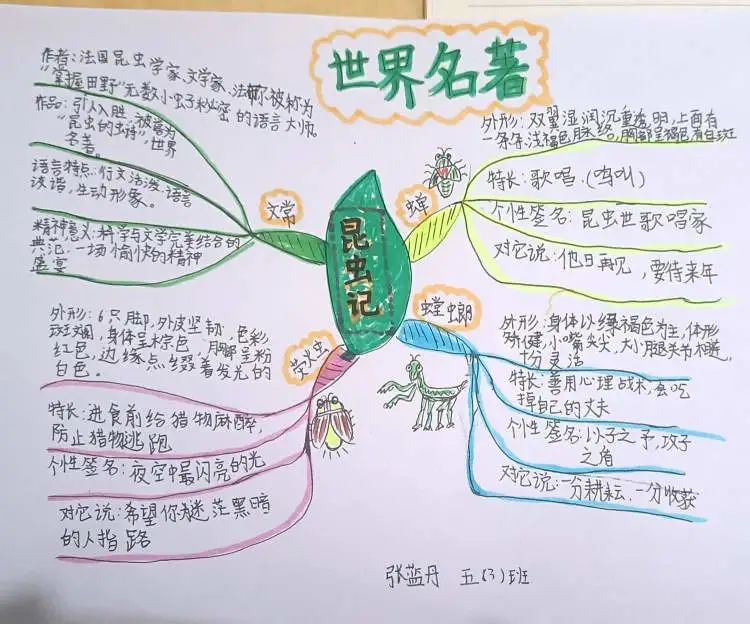 世界名著
昆虫记
文常
作者：法国昆虫学家、文学家、法布尔被称为
"掌握田野"无数小虫子秘密的语言大师。
作品：引人入胜，被誉为
"昆虫的史诗"，世界
名著。
语言特点：行文活泼，语言
诙谐，生动形象。
精神意义：科学与文学完美结合的
典范，一场愉快的精神
盛宴
蝉
外形：双翼湿润沉重透明，上面有
一条条浅褐色脉络，胸部呈褐色有白斑
特长：歌唱.(鸣叫)
个性签名：昆虫世歌唱家
对它说：他日再见，要待来年
萤火虫
外形：6只脚，外皮坚韧，色彩
斑斓，身体呈棕色，胸部呈粉
红色，边缘点缀着发光的
白色。
特长：进食前给猎物麻醉，
防止猎物逃跑
个性签名：夜空中最闪亮的光
对它说：希望你为迷茫黑暗
的人指路
螳螂
外形：身体以绿褐色为主，体形
矫健，小嘴尖尖，大小腿关节相连，
十分灵活
特长：善用心理战术，会吃
掉自己的丈夫
个性签名：以子之矛，攻子
之角
对它说：一分耕耘，一分收获
张蓝丹 五(3)班